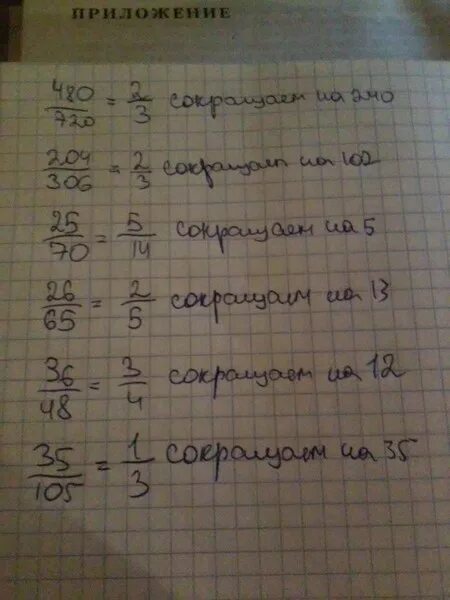 ПРИЛОЖЕНИЕ
480/720 = 2/3 сокращаем на 240
204/306 = 2/3 сокращаем на 102
25/70 = 5/14 сокращаем на 5
26/65 = 2/5 сокращаем на 13
36/48 = 3/4 сокращаем на 12
35/105 = 1/3 сокращаем на 35